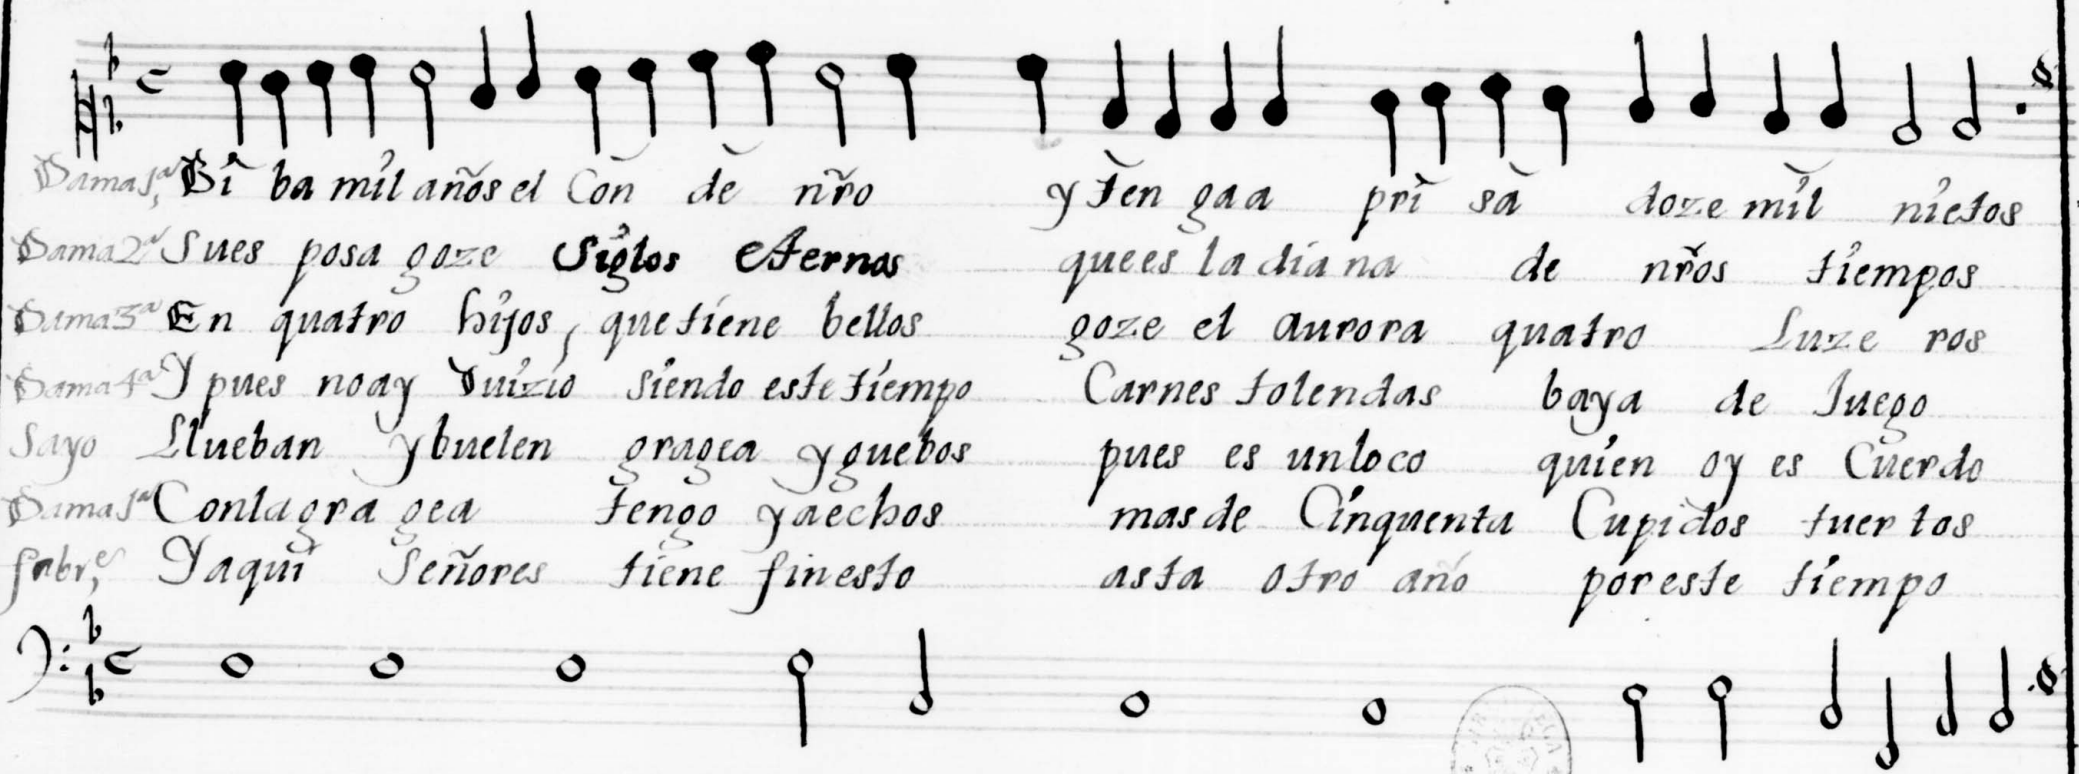 Dama 1ª, Bi ba mil años el Con de nr̃o y ten gaa pri sa doze mil nietos
Dama 2ª Sues posa goze Siglos eternos quees la dia na de nr̃os tiempos
Dama 3ª En quatro hijos, que tiene bellos goze el aurora quatro Luze ros
Dama 4ª Y pues noay Juizio siendo este tiempo Carnes tolendas baya de Juego
Sayo Llueban y buelen gragea y guebos pues es un loco quien oy es Cuerdo
Dama 1ª Con la gra gea tengo ya echos mas de Cinquenta Cupidos tuer tos
Yaqui Señores tiene fin esto asta otro año por este tiempo